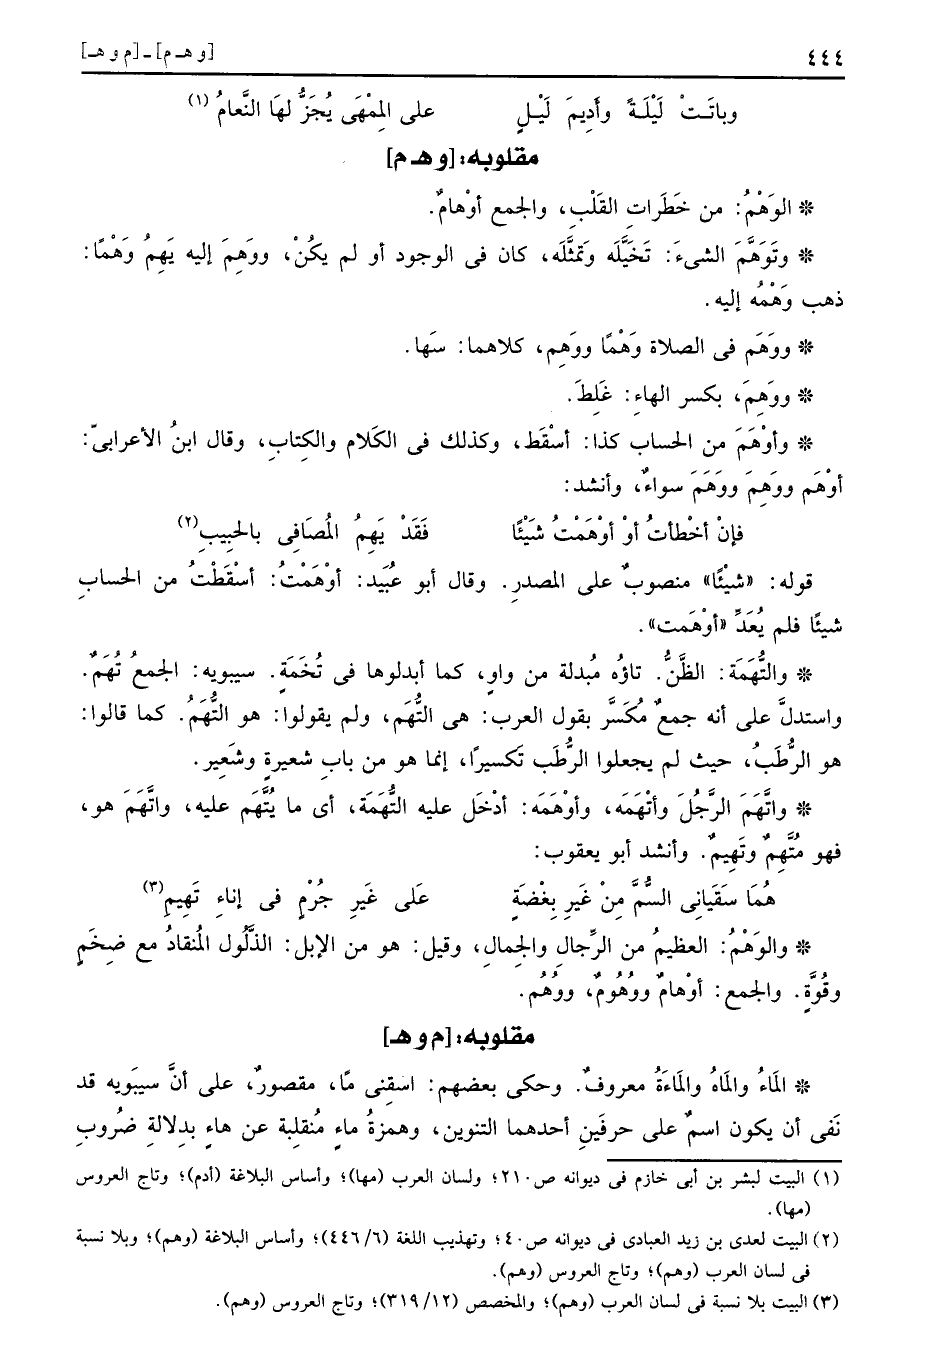 ٤٤٤
[و هـ م] ـ [م و هـ]
وباتَـتْ لَيْلَـةً وأَدِيمَ لَيْـلٍ على المِمْهَى يُجَزُّ لهَا النَّعامُ (١)
مقلوبه: [و هـ م]
* الوَهْمُ: من خَطَراتِ القَلْبِ، والجمع أوْهامٌ.
* وتَوَهَّمَ الشىءَ: تَخَيَّلَه وَتمثَّلَه، كان فى الوجود أو لم يكُنْ، ووهِمَ إليه يَهِمُ وَهْمًا:
ذهب وَهْمُه إليه.
* ووَهَم فى الصلاة وَهْمًا ووَهِم، كلاهما: سَها.
* ووَهِمَ، بكسر الهاءِ: غَلِطَ.
* وأوْهَمَ من الحساب كذا: أسْقَط، وكذلك فى الكَلام والكِتابِ، وقال ابنُ الأعرابىّ:
أوْهَم ووَهِمَ ووَهَمَ سواءٌ، وأنشد:
فإنْ أخْطأتُ أوْ أوْهَمْتُ شَيْئًا فَقَدْ يَهِمُ المُصَافِى بالحَبِيبِ(٢)
قوله: «شَيْئًا» منصوبٌ على المصدرِ. وقال أبو عُبَيد: أوْهَمْتُ: أسْقَطْتُ من الحسابِ
شيئًا فلم يُعَدِّ «أوْهَمت».
* والتُّهَمَة: الظَّنُّ. تاؤه مُبدلة من واوٍ، كما أبدلوها فى تُخَمَةٍ. سيبويه: الجمعُ تُهَمٌ.
واستدلَّ على أنه جمعٌ مُكَسَّر بقول العرب: هى التُّهَم، ولم يقولوا: هو التُّهَمُ. كما قالوا:
هو الرُّطَبُ، حيث لم يجعلوا الرُّطَب تَكسيرًا، إنما هو من بابِ شعيرةٍ وشَعِير.
* واتَّهَمَ الرَّجُلَ وأتْهَمَه، وأوْهَمَه: أدْخَل عليه التُّهَمَة، أى ما يُتَّهَم عليه، واتَّهَمَ هو،
فهو مُتَّهِمٌ وتَهِيمٌ. وأنشد أبو يعقوب:
هُمَا سَقَيانِى السُّمَّ مِنْ غَيرِ بِغْضَةٍ عَلى غَيرِ جُرْمٍ فى إناءِ تَهِيمِ(٣)
* والوَهْمُ: العظيمُ من الرِّجالِ والجِمالِ، وقيل: هو من الإبل: الذَّلُول المُنقادُ مع ضِخَمٍ
وقُوَّةٍ. والجمع: أوْهامٌ ووُهُومٌ، ووُهُم.
مقلوبه: [م و هـ]
* المَاءُ والمَاهُ والمَاءَةُ معروفٌ. وحكى بعضهم: اسقِنى مًا، مقصورٌ، على أنَّ سيبَويه قد
نَفى أن يكون اسمٌ على حرفَينِ أحدهما التنوين، وهمزةُ ماءٍ مُنقلبة عن هاءٍ بدِلالةِ ضُروبِ
(١) البيت لبشر بن أبى خازم فى ديوانه ص٢١٠؛ ولسان العرب (مها)؛ وأساس البلاغة (أدم)؛ وتاج العروس
(مها).
(٢) البيت لعدى بن زيد العبادى فى ديوانه ص٤٠؛ وتهذيب اللغة (٦/ ٤٤٦)؛ وأساس البلاغة (وهم)؛ وبلا نسبة
فى لسان العرب (وهم)؛ وتاج العروس (وهم).
(٣) البيت بلا نسبة فى لسان العرب (وهم)؛ والمخصص (١٢/ ٣١٩)؛ وتاج العروس (وهم).